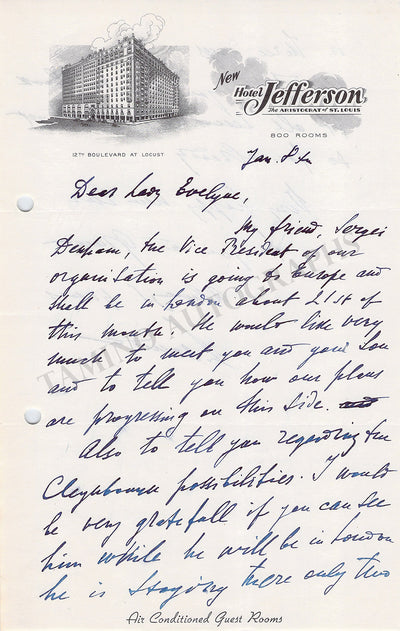 New
Hotel Jefferson
The ARISTOCRAT of ST. LOUIS
800 ROOMS
12TH BOULEVARD AT LOCUST
Jan. 8th
Dear Lady Evelyne,
My friend, Sergei
Denham, the Vice President of our
organisation is going to Europe and
shall be in London about 21st of
this month. He would like very
much to meet you and your Son
and to tell you how our plans
are progressing on this side.
Also to tell you regarding the
possibilities. I would
be very gratefull if you can see
him while he will be in London
he is staying there only two
Air Conditioned Guest Rooms
TAMINO AUTOGRAPHS